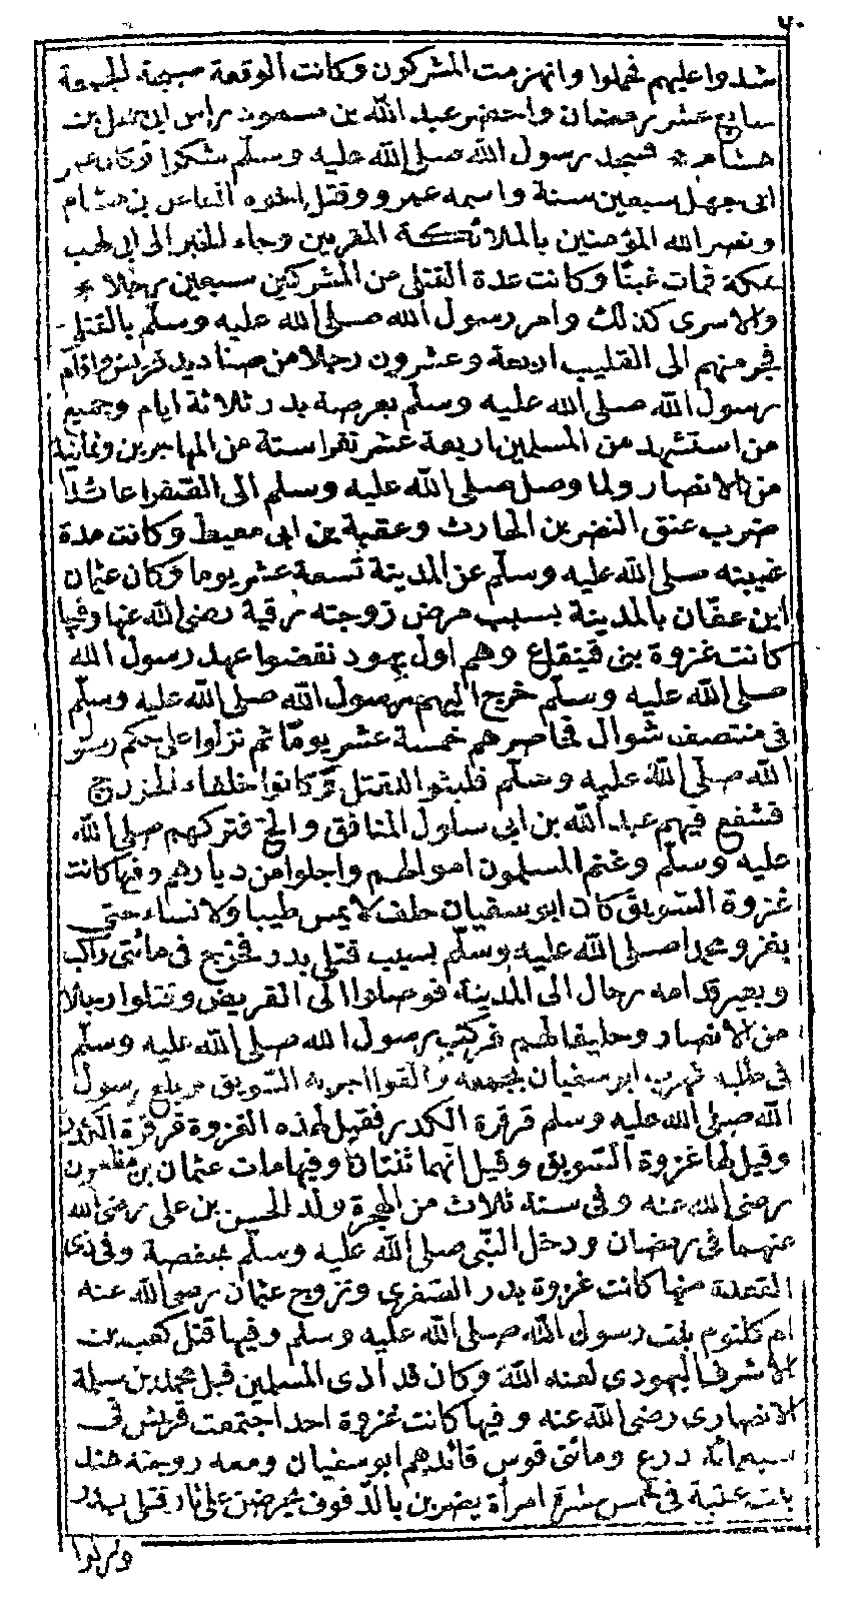 ٧٠
شدوا عليهم فحملوا وانهزمت المشركون وكانت الوقعة صبيحة الجمعة
سابع عشر رمضان واحضر عبد الله بن مسعود راس ابى جهل بن
هشام * فسجد رسول الله صلى الله عليه وسلم شكرا وكان عمر
ابى جهل سبعين سنة واسمه عمرو وقتل اخوه العاص بن هشام
ونصر الله المؤمنين بالملائكة المقربين وجاء الخبر الى ابى لهب
بمكة فمات غبنا وكانت عدة القتلى من المشركين سبعين رجلا *
والاسرى كذلك وامر رسول الله صلى الله عليه وسلم بالقتلى
فجر منهم الى القليب اربعة وعشرون رجلا من صناديد قريش واقام
رسول الله صلى الله عليه وسلم بعرصة بدر ثلاثة ايام وجميع
من استشهد من المسلمين اربعة عشر نفرا ستة من المهاجرين وثمانية
من الانصار ولما وصل صلى الله عليه وسلم الى الصفرا عائدا
ضرب عنق النضر بن الحارث وعقبة بن ابى معيط وكانت مدة
غيبته صلى الله عليه وسلم عن المدينة تسعة عشر يوما وكان عثمان
ابن عفان بالمدينة بسبب مرض زوجته رقية رضى الله عنها وفيها
كانت غزوة بنى قينقاع وهم اول يهود نقضوا عهد رسول الله
صلى الله عليه وسلم خرج اليهم رسول الله صلى الله عليه وسلم
فى منتصف شوال فحاصرهم خمسة عشر يوما ثم نزلوا على حكم رسول
الله صلى الله عليه وسلم فلبثوا للقتل وكانوا خلفاء الخزرج
فشفع فيهم عبد الله بن ابى سلول المنافق والح فتركهم صلى الله
عليه وسلم وغنم المسلمون اموالهم واجلوا من ديارهم وفيها كانت
غزوة السويق كان ابو سفيان حلف لا يمس طيبا ولا نساء حتى
يغزو محمدا صلى الله عليه وسلم بسبب قتلى بدر فخرج فى مائتى راكب
وبعير قدامه رجال الى المدينة فوصلوا الى القريض وقتلوا رجالا
من الانصار وحليفا لهم فركب رسول الله صلى الله عليه وسلم
فى طلبه فهرب ابو سفيان بجمعه والقوا اجربة السويق وبلغ رسول
الله صلى الله عليه وسلم قرقرة الكدر فقيل لهذه الغزوة قرقرة الكدر
وقيل لها غزوة السويق وقيل انهما ثنتان وفيها مات عثمان بن مظعون
رضى الله عنه وفى سنة ثلاث من الهجرة ولد الحسن بن على رضى الله
عنهما فى رمضان ودخل النبى صلى الله عليه وسلم بحفصة وفى ذى
القعدة منها كانت غزوة بدر الصغرى وتزوج عثمان رضى الله عنه
ام كلثوم بنت رسول الله صلى الله عليه وسلم وفيها قتل كعب بن
الاشرف اليهودى لعنه الله وكان قد اذى المسلمين قبل محمد بن مسلمة
الانصارى رضى الله عنه وفيها كانت غزوة احد اجتمعت قريش فى
سبعمائة درع ومائتى قوس قائدهم ابو سفيان ومعه زوجته هند
بنت عتبة فى خمس عشرة امرأة يضربن بالدفوف يحرضن على ثار قتلى بدر
ونزلوا